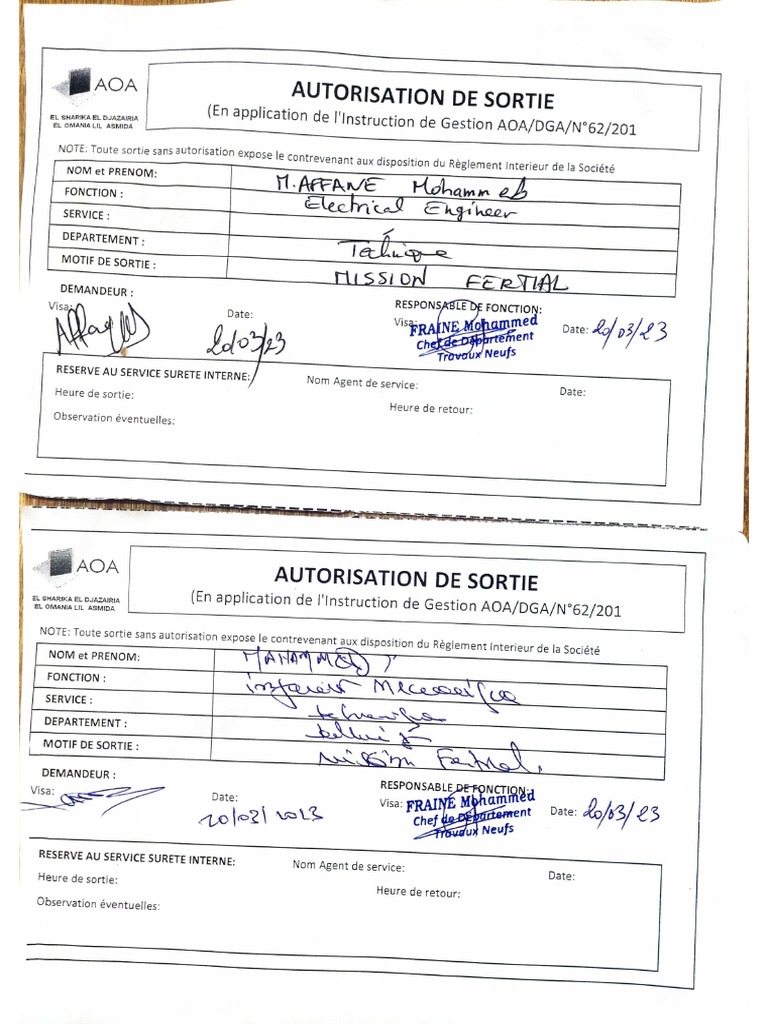 AOA
EL SHARIKA EL DJAZAIRIA
EL OMANIA LIL ASMIDA
AUTORISATION DE SORTIE
(En application de l'Instruction de Gestion AOA/DGA/N°62/201
NOTE: Toute sortie sans autorisation expose le contrevenant aux disposition du Règlement Interieur de la Société
NOM et PRENOM: M.AFFANE Mohammed
FONCTION : Electrical Engineer
SERVICE :
DEPARTEMENT : Téchnique
MOTIF DE SORTIE : MISSION FERTIAL
DEMANDEUR : RESPONSABLE DE FONCTION:
Visa: Date: 20/03/23 Visa: FRAINE Mohammed Date: 20/03/23
Chef de Département
Travaux Neufs
RESERVE AU SERVICE SURETE INTERNE: Nom Agent de service: Date:
Heure de sortie: Heure de retour:
Observation éventuelles:
AOA
EL SHARIKA EL DJAZAIRIA
EL OMANIA LIL ASMIDA
AUTORISATION DE SORTIE
(En application de l'Instruction de Gestion AOA/DGA/N°62/201
NOTE: Toute sortie sans autorisation expose le contrevenant aux disposition du Règlement Interieur de la Société
NOM et PRENOM:
FONCTION :
SERVICE :
DEPARTEMENT :
MOTIF DE SORTIE : mission Fertial.
DEMANDEUR : RESPONSABLE DE FONCTION:
Visa: Date: 20/03/2023 Visa: FRAINE Mohammed Date: 20/03/23
Chef de Département
Travaux Neufs
RESERVE AU SERVICE SURETE INTERNE: Nom Agent de service: Date:
Heure de sortie: Heure de retour:
Observation éventuelles: